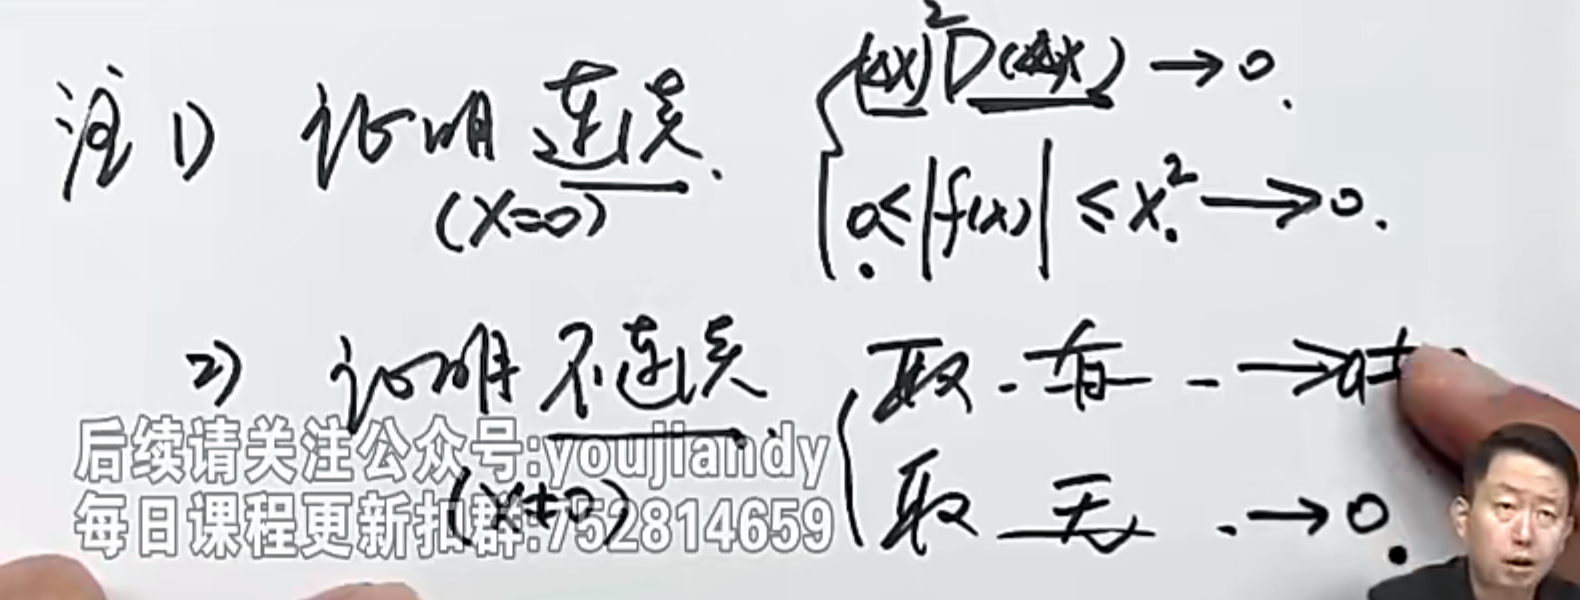 注 1) 证明连续.
(x=0)
(Δx)²D(Δx) → 0.
0 ≤ |f(x)| ≤ x² → 0.
2) 证明不连续.
(x≠0)
取 - 有 - → a≠
取 无 . → 0.
后续请关注公众号:youjiandy
每日课程更新扣群:752814659